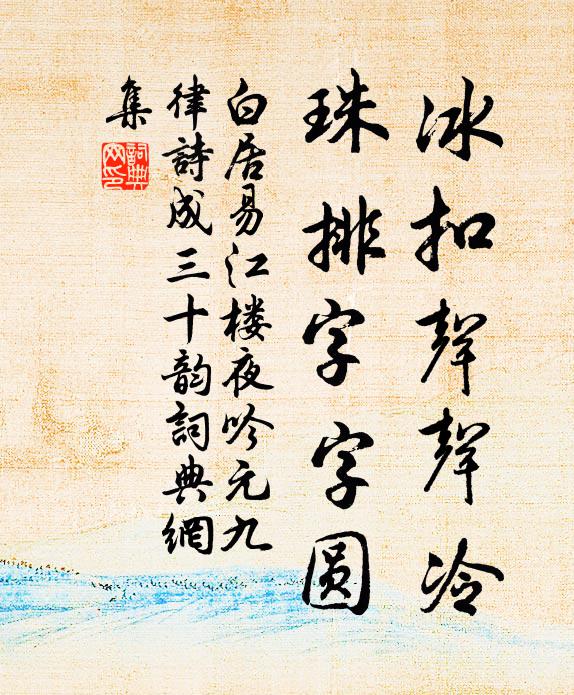 冰扣聲聲冷
珠排字字圆
白居易江楼夜吟元九
律詩成三十韵詞典網
集
詞典
网印